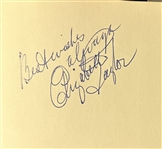 Best wishes
always
Elizabeth
Taylor